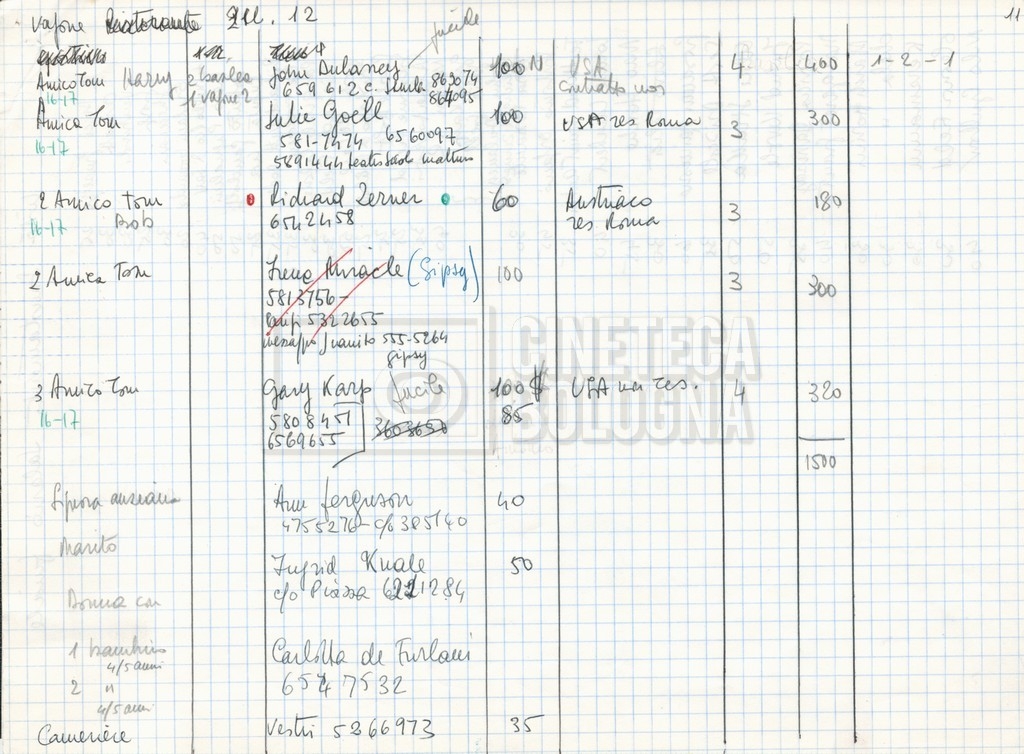 vapore Ristorante 12 11
fucile
Amico Tom Harry John Dulaney 100 N USA 4 400 1-2-1
16-17 1 vapore? 659 612 863074
contratto nos 864095
Amica Tom Julie Goell 100 USA res Roma 3 300
16-17 581-7474 6560097
5891444
2 Amico Tom Richard Zerner 60 Austriaco 3 180
16-17 Bob 6542458 res Roma
2 Amica Tom Irene Miracle (Gipsy) 100 3 300
5813756-
5322655
Juanito 555-5264
gipsy
3 Amico Tom Gary Karp fucile 100 $ USA no res. 4 320
16-17 5808451 85
6569655 3603650
1500
Signora anziana Ann Ferguson 40
4755276- c/o 385140
Marito
Ingrid 50
c/o Piazza 6221284
Donna con
1 bambino Carlotta de Furlani
4/5 anni
2 " 6547532
4/5 anni
Cameriere Vestri 5266973 35
CINETECA
BOLOGNA